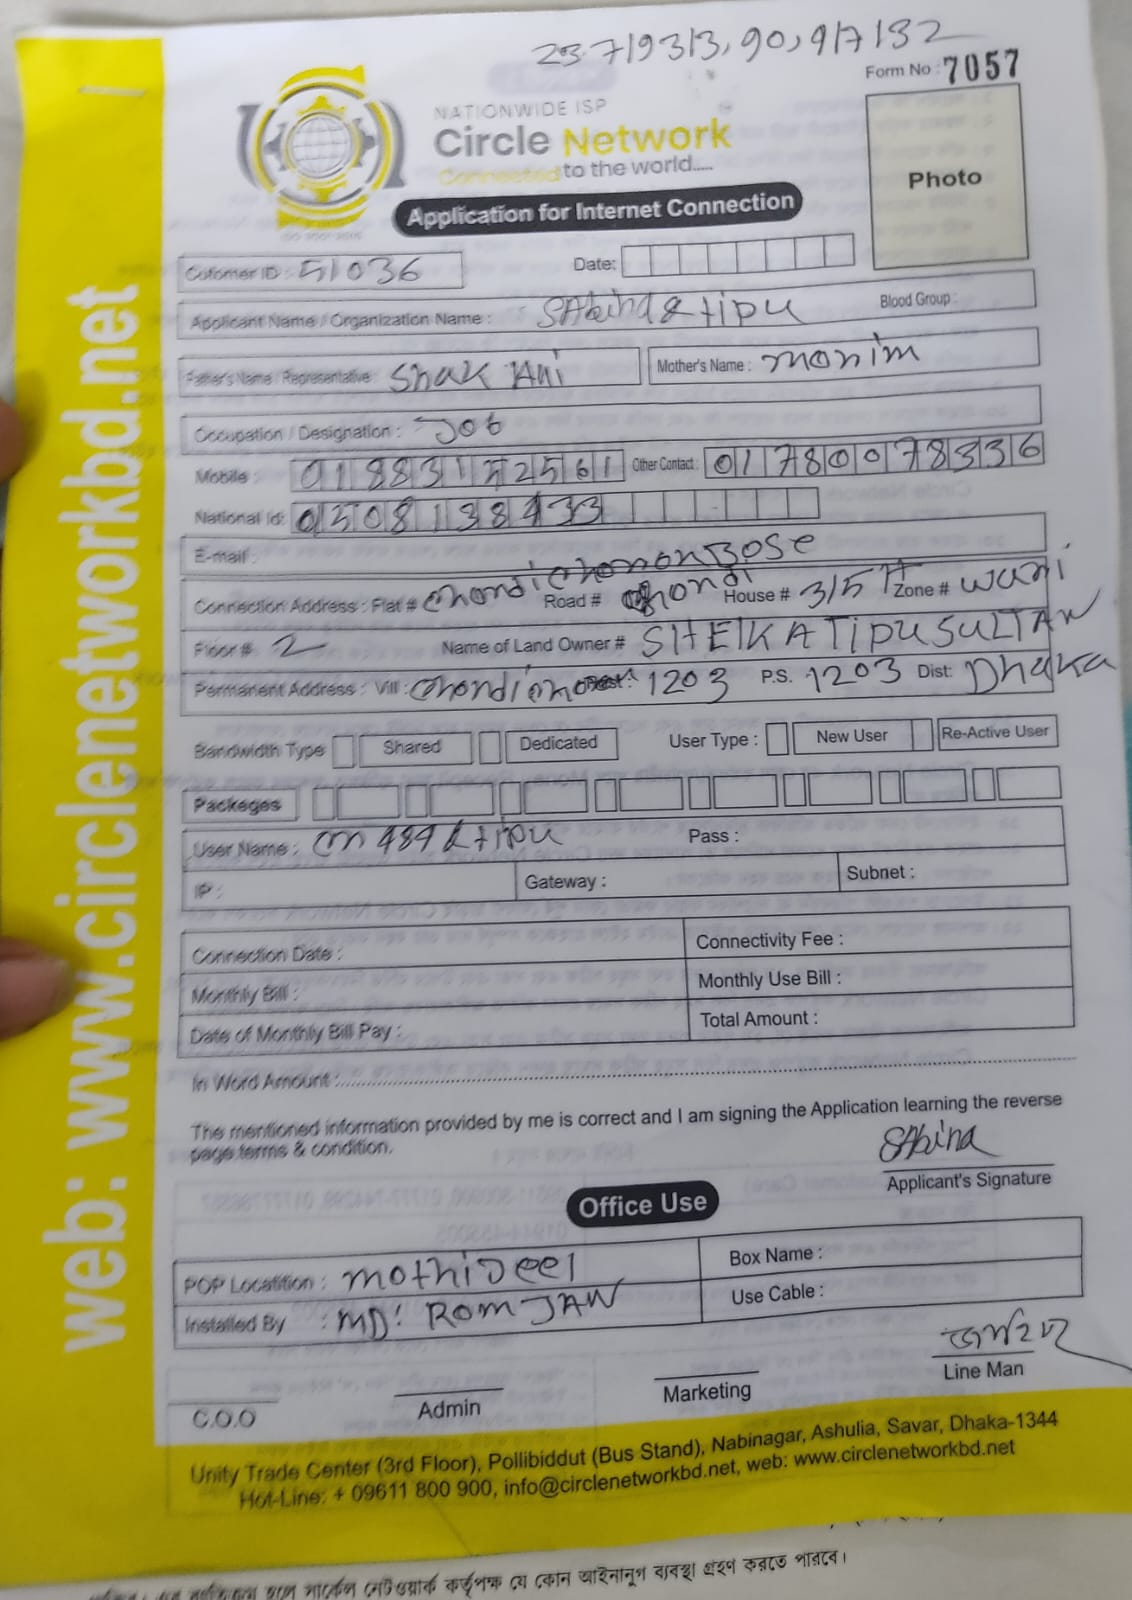 23.719313, 90,97132
Form No : 7057
NATIONWIDE ISP
Circle Network
Connected to the world.....
Photo
Application for Internet Connection
Cutomer ID : 51036 Date:
Applicant Name / Organization Name : SAbina & tipu Blood Group :
Father's Name / Representative: Shak Mother's Name : monim
Occupation / Designation : Job
Mobile : 01883122561 Other Contact : 01780078336
National Id: 0508138933
E-mail :
Connection Address : Flat # Road # House # 315 A Zone # wari
Floor # 2 Name of Land Owner # SHEIKA TIPU SULTAN
Permanent Address : Vill : 1203 P.S. 1203 Dist: Dhaka
Bandwidth Type Shared Dedicated User Type : New User Re-Active User
Packages
User Name : Pass :
IP : Gateway : Subnet :
Connection Date : Connectivity Fee :
Monthly Bill : Monthly Use Bill :
Date of Monthly Bill Pay : Total Amount :
In Word Amount :
The mentioned information provided by me is correct and I am signing the Application learning the reverse
page terms & condition.
SAbina
Applicant's Signature
Office Use
POP Locatition : mothijeel Box Name :
Installed By : MD: ROMJAN Use Cable :
C.O.O Admin Marketing Line Man
Unity Trade Center (3rd Floor), Pollibiddut (Bus Stand), Nabinagar, Ashulia, Savar, Dhaka-1344
Hot-Line: + 09611 800 900, info@circlenetworkbd.net, web: www.circlenetworkbd.net
web: www.circlenetworkbd.net
সার্কেল নেটওয়ার্ক কর্তৃপক্ষ যে কোন আইনানুগ ব্যবস্থা গ্রহণ করতে পারবে।